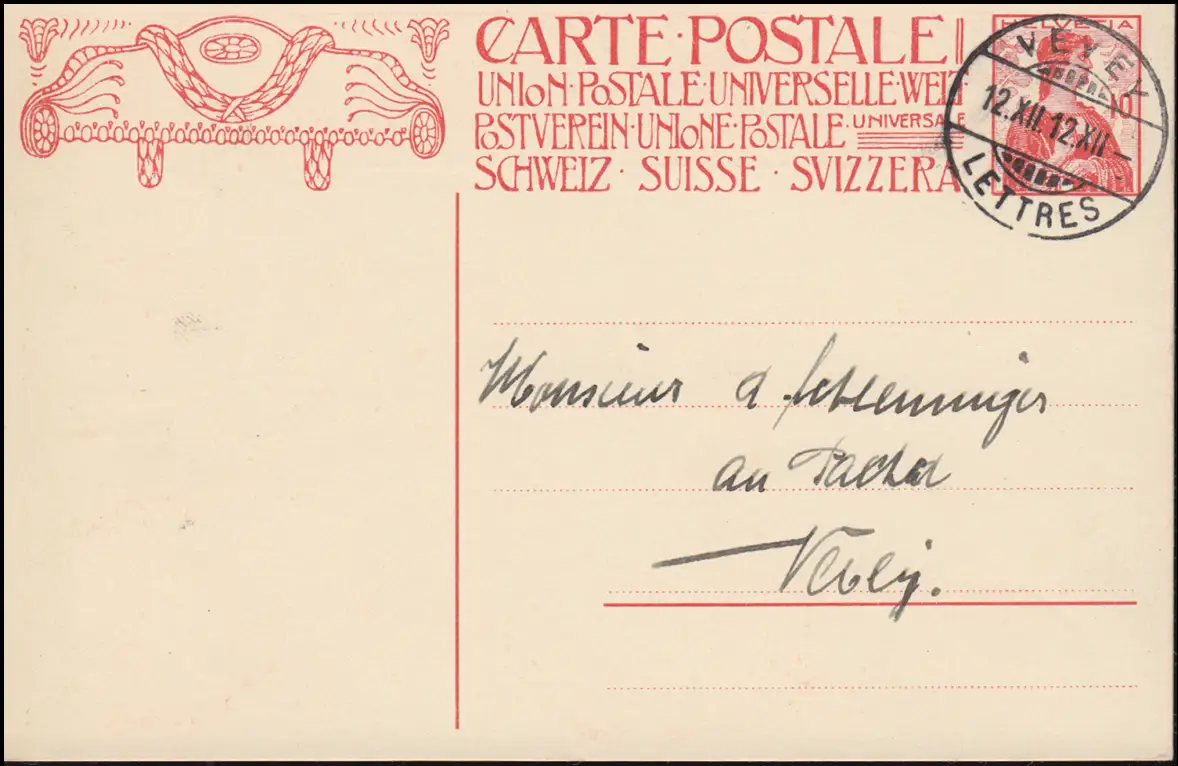 CARTE·POSTALE
UNION·POSTALE·UNIVERSELLE·WELT
POSTVEREIN·UNIONE·POSTALE·UNIVERSALE
SCHWEIZ · SUISSE · SVIZZERA
HELVETIA
10
VEVEY
12.XII.12.XII–
LETTRES
Monsieur
au